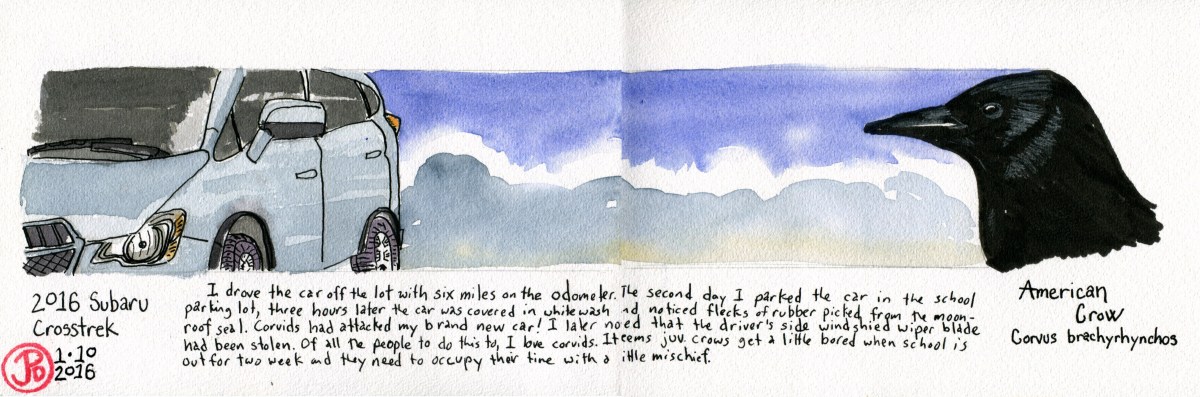 2016 Subaru
Crosstrek
1·10
2016
I drove the car off the lot with six miles on the odometer. The second day I parked the car in the school
parking lot, three hours later the car was covered in whitewash nd noticed flecks of rubber picked from the moon-
roof seal. Corvids had attacked my brand new car! I later no ed that the driver's side windshied wiper blade
had been stolen. Of all the people to do this to, I love corvids. It eems juv. crows get a little bored when school is
out for two week and they need to occupy their time with a ittle mischief.
American
Crow
Corvus brachyrhynchos